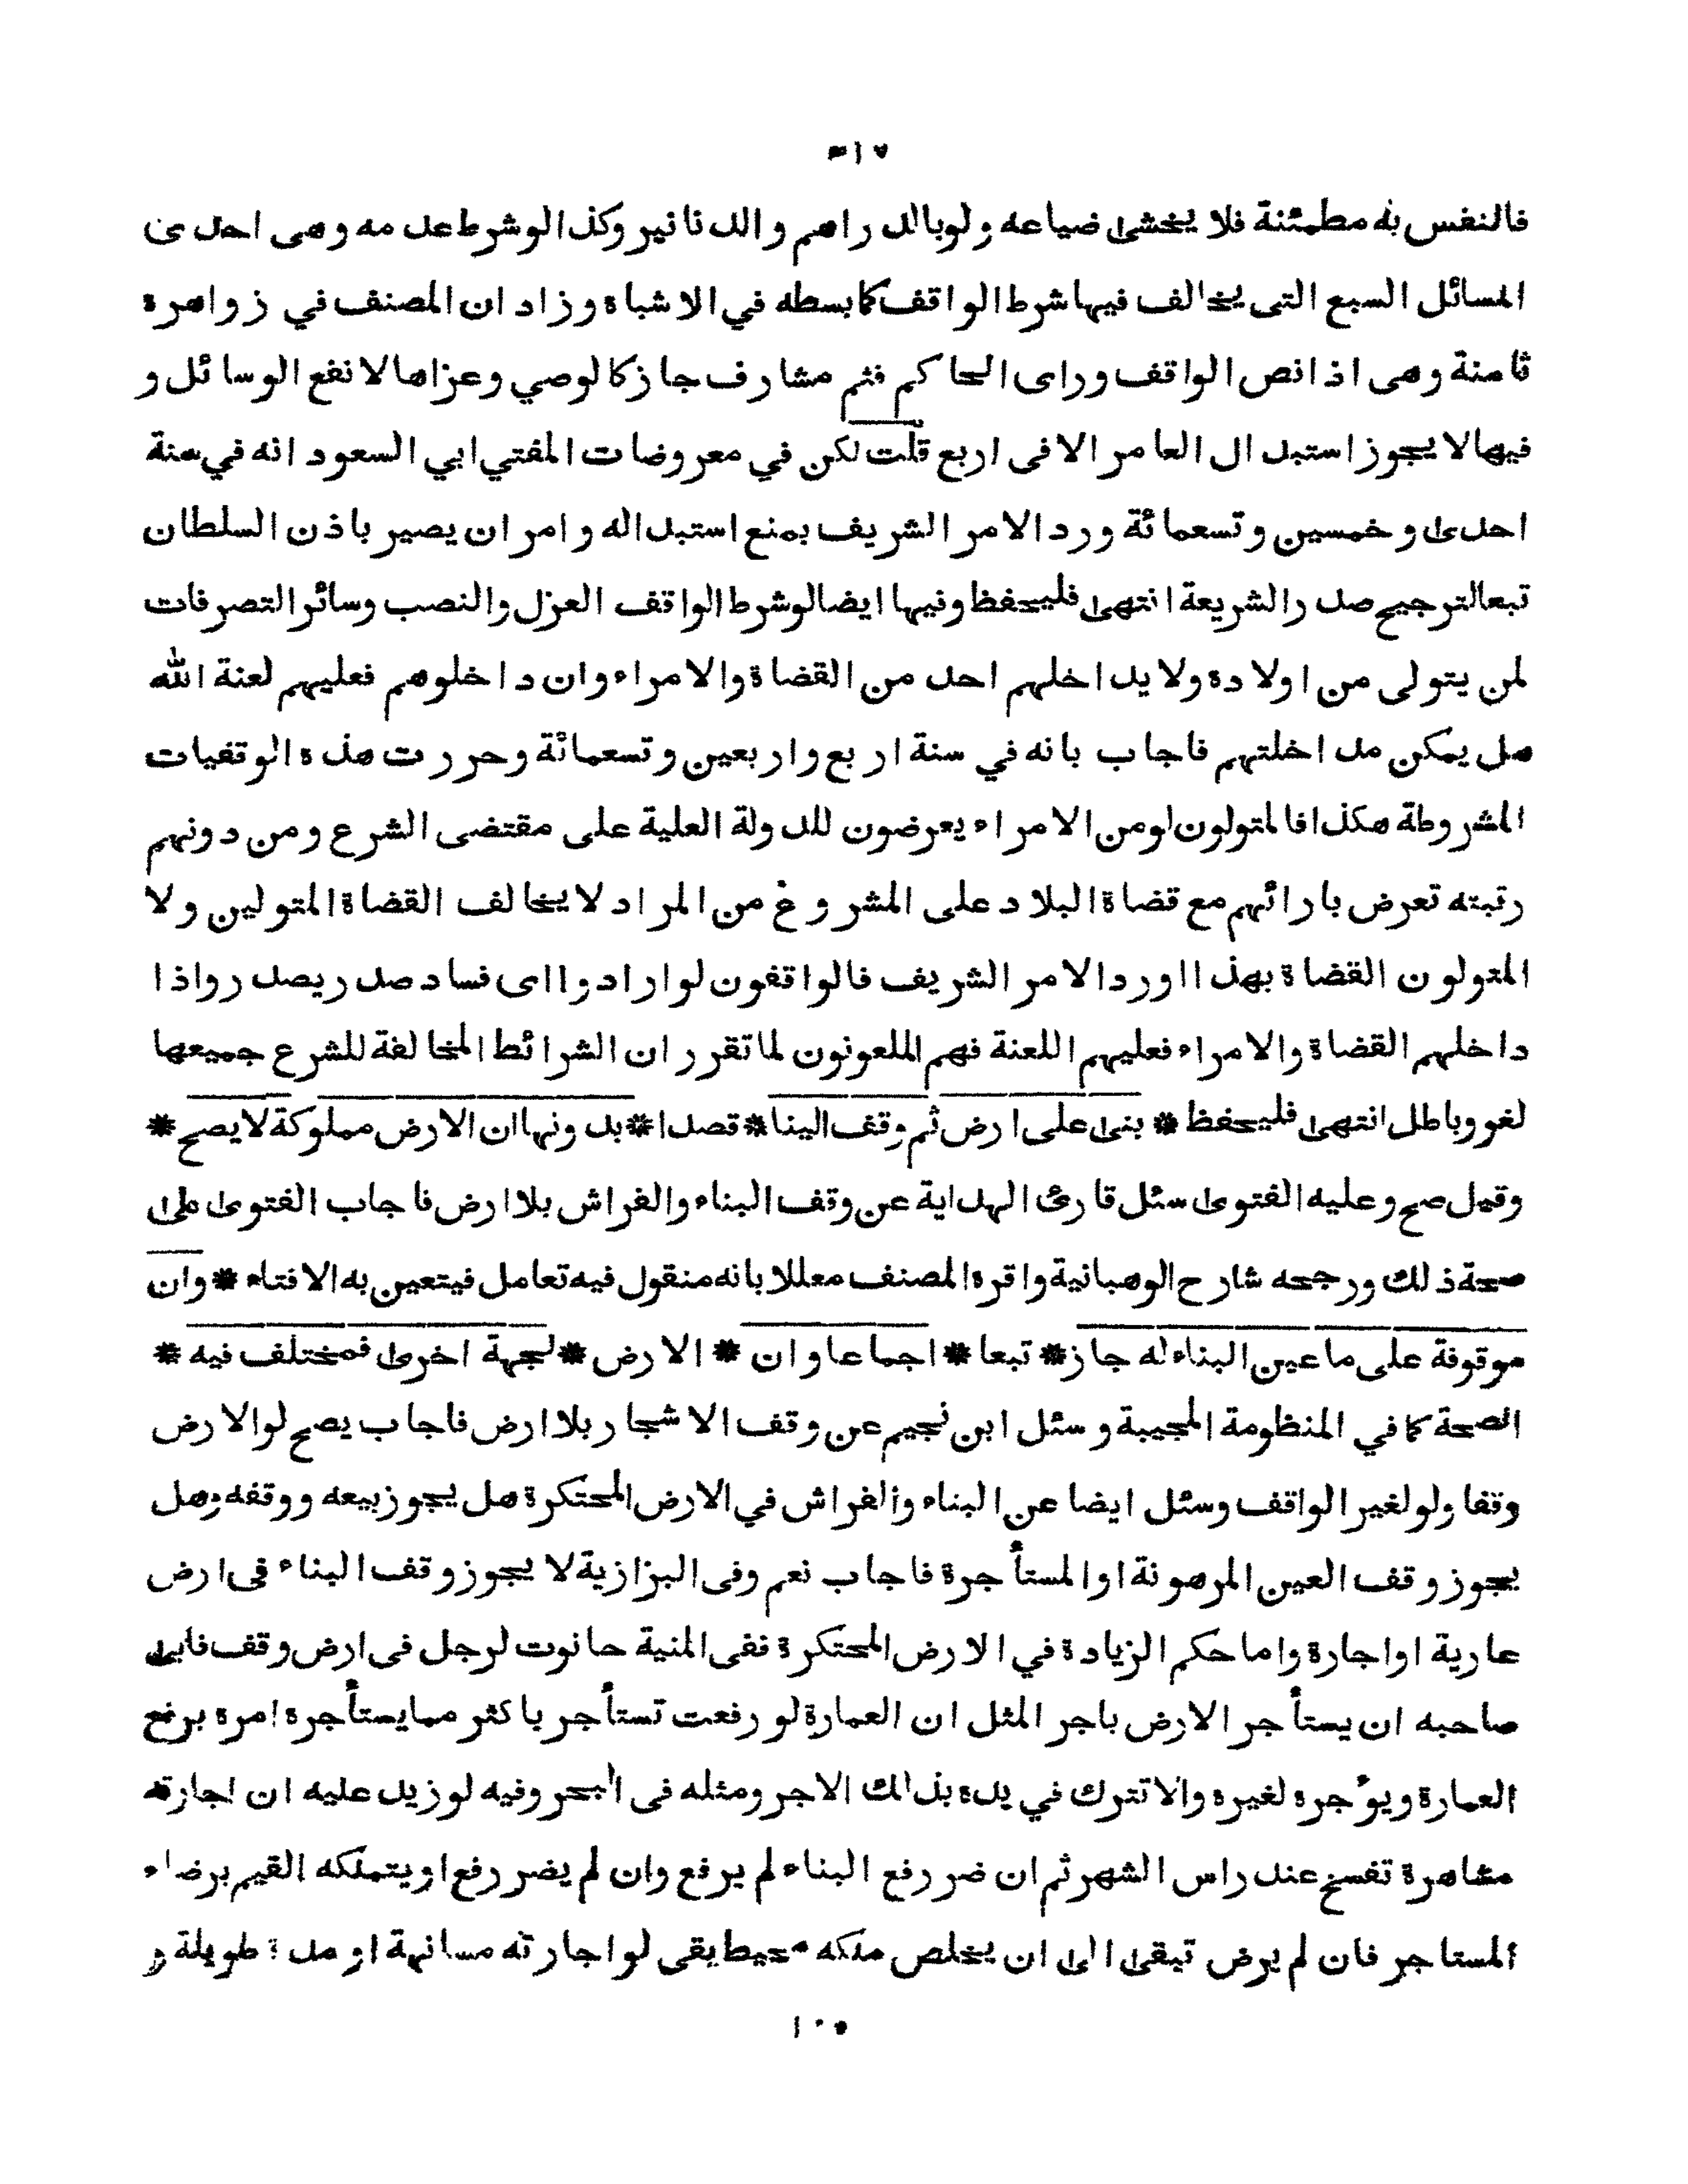 ٤١٧
فالنفس به مطمئنة فلا يخشى ضياعه ولو بالدراهم والدنانير وكذا لو شرط عدمه وهى احدى
المسائل السبع التى يخالف فيها شرط الواقف كما بسطه في الاشباه وزاد ان المصنف في زواهره
ثامنة وهى اذا نص الواقف وراى الحاكم ضم مشارف جاز كالوصي وعزاها لانفع الوسائل و
فيها لا يجوز استبدال العامر الا فى اربع قلت لكن في معروضات المفتي ابي السعود انه في سنة
احدى وخمسين وتسعمائة ورد الامر الشريف بمنع استبداله وامر ان يصير باذن السلطان
تبعا لترجيح صدر الشريعة انتهى فليحفظ وفيها ايضا لو شرط الواقف العزل والنصب وسائر التصرفات
لمن يتولى من اولاده ولا يداخلهم احد من القضاة والامراء وان داخلوهم فعليهم لعنة الله
هل يمكن مداخلتهم فاجاب بانه في سنة اربع واربعين وتسعمائة وحررت هذه الوقفيات
المشروطة هكذا فالمتولون لو من الامراء يعرضون للدولة العلية على مقتضى الشرع ومن دونهم
رتبته تعرض بارائهم مع قضاة البلاد على المشروع من المراد لا يخالف القضاة المتولين ولا
المتولون القضاة بهذا اورد الامر الشريف فالواقفون لو ارادوا اى فساد صدر يصدر واذا
داخلهم القضاة والامراء فعليهم اللعنة فهم الملعونون لما تقرر ان الشرائط المخالفة للشرع جميعها
لغو وباطل انتهى فليحفظ * بنى على ارض ثم وقف البنا * قصدا * بدونها ان الارض مملوكة لا يصح *
وقيل صح وعليه الفتوى سئل قارئ الهداية عن وقف البناء والغراش بلا ارض فاجاب الفتوى على
صحة ذلك ورجحه شارح الوهبانية واقره المصنف معللا بانه منقول فيه تعامل فيتعين به الافتاء * وان
موقوفة على ما عين البناء له جاز * تبعا * اجماعا وان * الارض * لجهة اخرى فمختلف فيه *
الصحة كما في المنظومة المحبية وسئل ابن نجيم عن وقف الاشجار بلا ارض فاجاب يصح لو الارض
وقفا ولو لغير الواقف وسئل ايضا عن البناء والغراش في الارض المحتكرة هل يجوز بيعه ووقفه وهل
يجوز وقف العين المرهونة او المستأجرة فاجاب نعم وفى البزازية لا يجوز وقف البناء فى ارض
عارية او اجارة واما حكم الزيادة في الارض المحتكرة ففى المنية حانوت لرجل فى ارض وقف فابى
صاحبه ان يستأجر الارض باجر المثل ان العمارة لو رفعت تستأجر باكثر مما يستأجره امره برفع
العمارة ويؤجره لغيره والا تترك في يده بذلك الاجر ومثله فى البحر وفيه لو زيد عليه ان اجارته
مشاهرة تفسخ عند راس الشهر ثم ان ضر رفع البناء لم يرفع وان لم يضر رفع او يتملكه القيم برضاء
المستاجر فان لم يرض تبقى الى ان يخلص ملكه محيط بقى لو اجارته مسانهة او مدة طويلة و
١٠٥